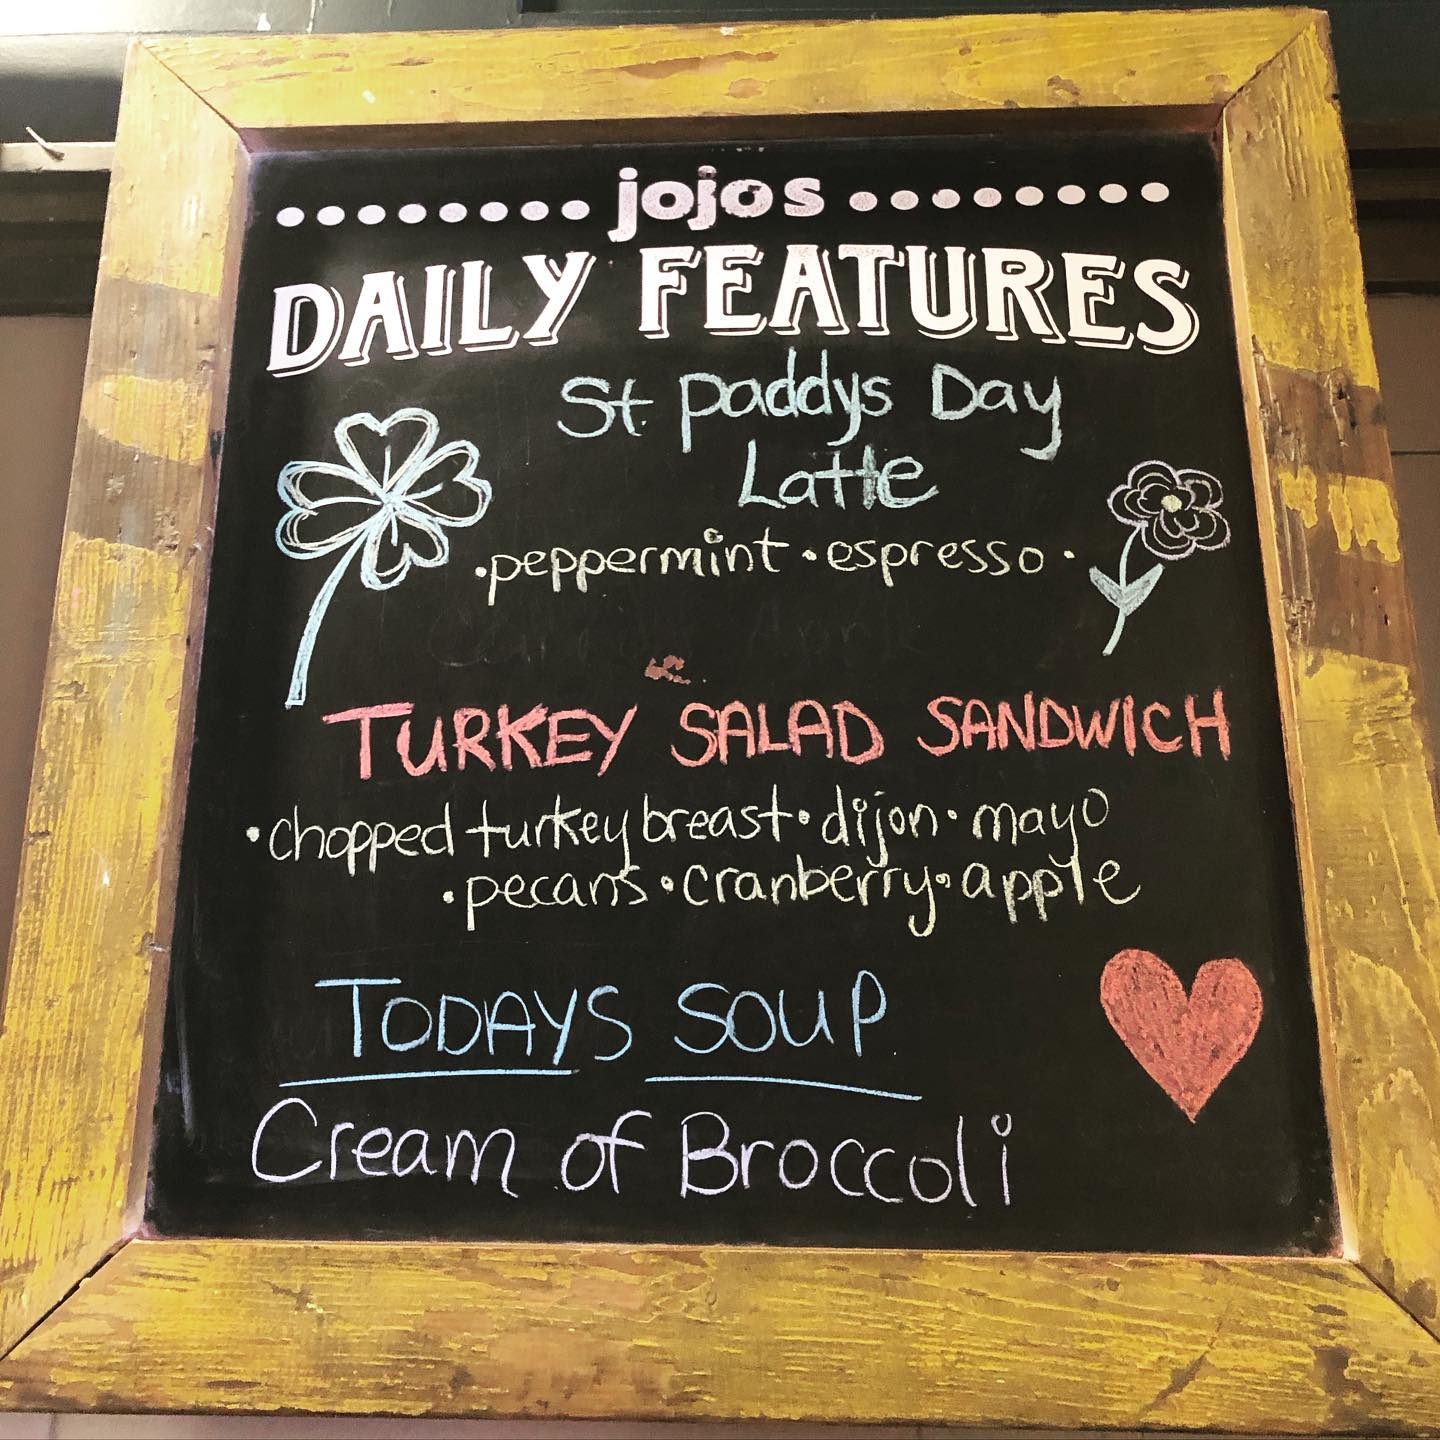 jojos
DAILY FEATURES
St paddys Day
Latte
•peppermint • espresso •
TURKEY SALAD SANDWICH
•chopped turkey breast • dijon • mayo
•pecans • cranberry • apple
TODAYS SOUP
Cream of Broccoli